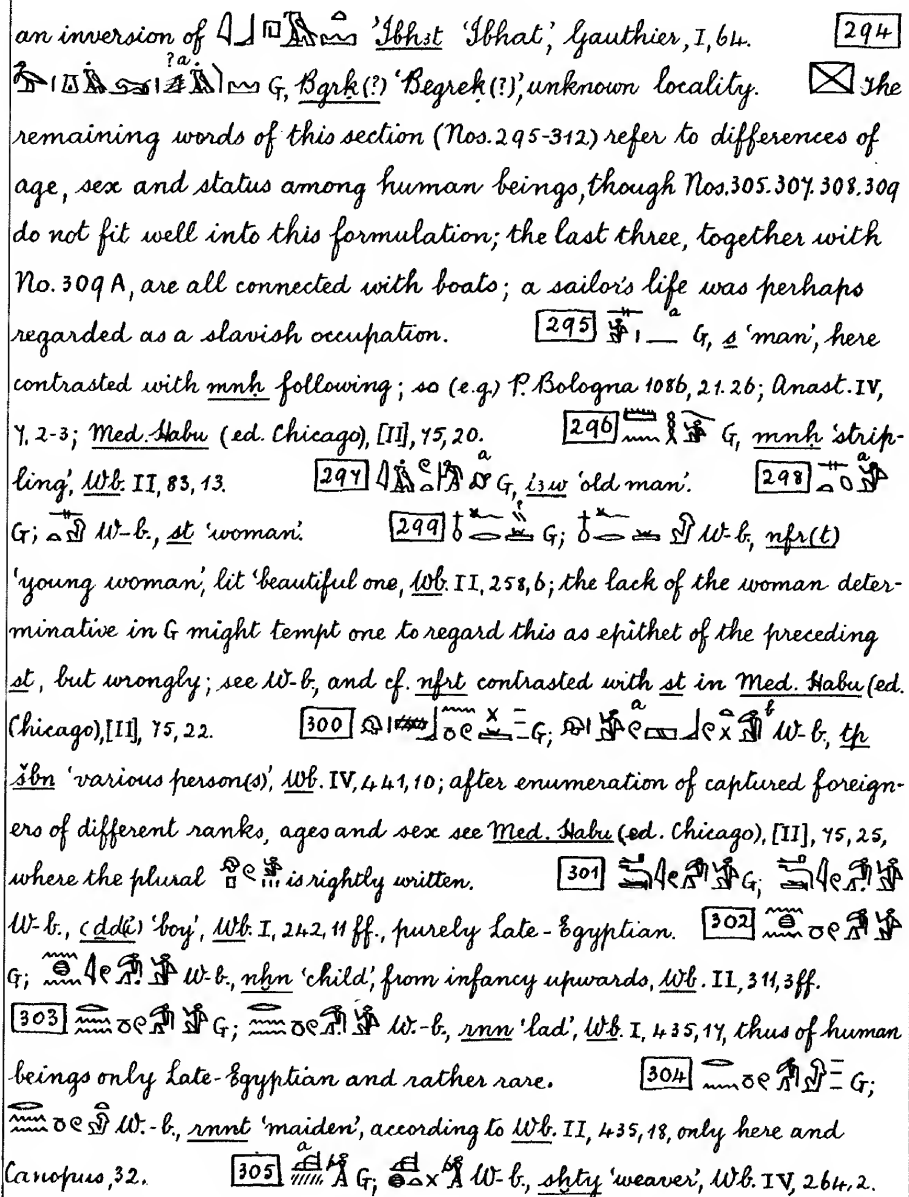 an inversion of 'Ibhꜣt 'Ibhat', Gauthier, I, 64. 294
G, Bgrḳ(?) 'Begreḳ(?)', unknown locality. The
remaining words of this section (Nos. 295-312) refer to differences of
age, sex and status among human beings, though Nos. 305. 307. 308. 309
do not fit well into this formulation; the last three, together with
No. 309 A, are all connected with boats; a sailor's life was perhaps
regarded as a slavish occupation. 295 G, s 'man', here
contrasted with mnḥ following; so (e.g.) P. Bologna 1086, 21. 26; Anast. IV,
7, 2-3; Med. Habu (ed. Chicago), [II], 75, 20. 296 G, mnḥ 'strip-
ling', Wb. II, 83, 13. 297 G, iꜣw 'old man'. 298
G; W-b., st 'woman'. 299 G; W-b, nfr(t)
'young woman', lit 'beautiful one, Wb. II, 258, 6; the lack of the woman deter-
minative in G might tempt one to regard this as epithet of the preceding
st, but wrongly; see W-b., and cf. nfrt contrasted with st in Med. Habu (ed.
Chicago), [II], 75, 22. 300 G; W-b., tp
šbn 'various person(s)', Wb. IV, 441, 10; after enumeration of captured foreign-
ers of different ranks, ages and sex see Med. Habu (ed. Chicago), [II], 75, 25,
where the plural is rightly written. 301 G;
W-b., ꜥddi 'boy', Wb. I, 242, 11 ff., purely Late-Egyptian. 302
G; W-b., nḫn 'child', from infancy upwards, Wb. II, 311, 3ff.
303 G; W.-b., rnn 'lad', Wb. I, 435, 17, thus of human
beings only Late-Egyptian and rather rare. 304 G;
W.-b., rnnt 'maiden', according to Wb. II, 435, 18, only here and
Canopus, 32. 305 G; W-b., sḫty 'weaver', Wb. IV, 264, 2.